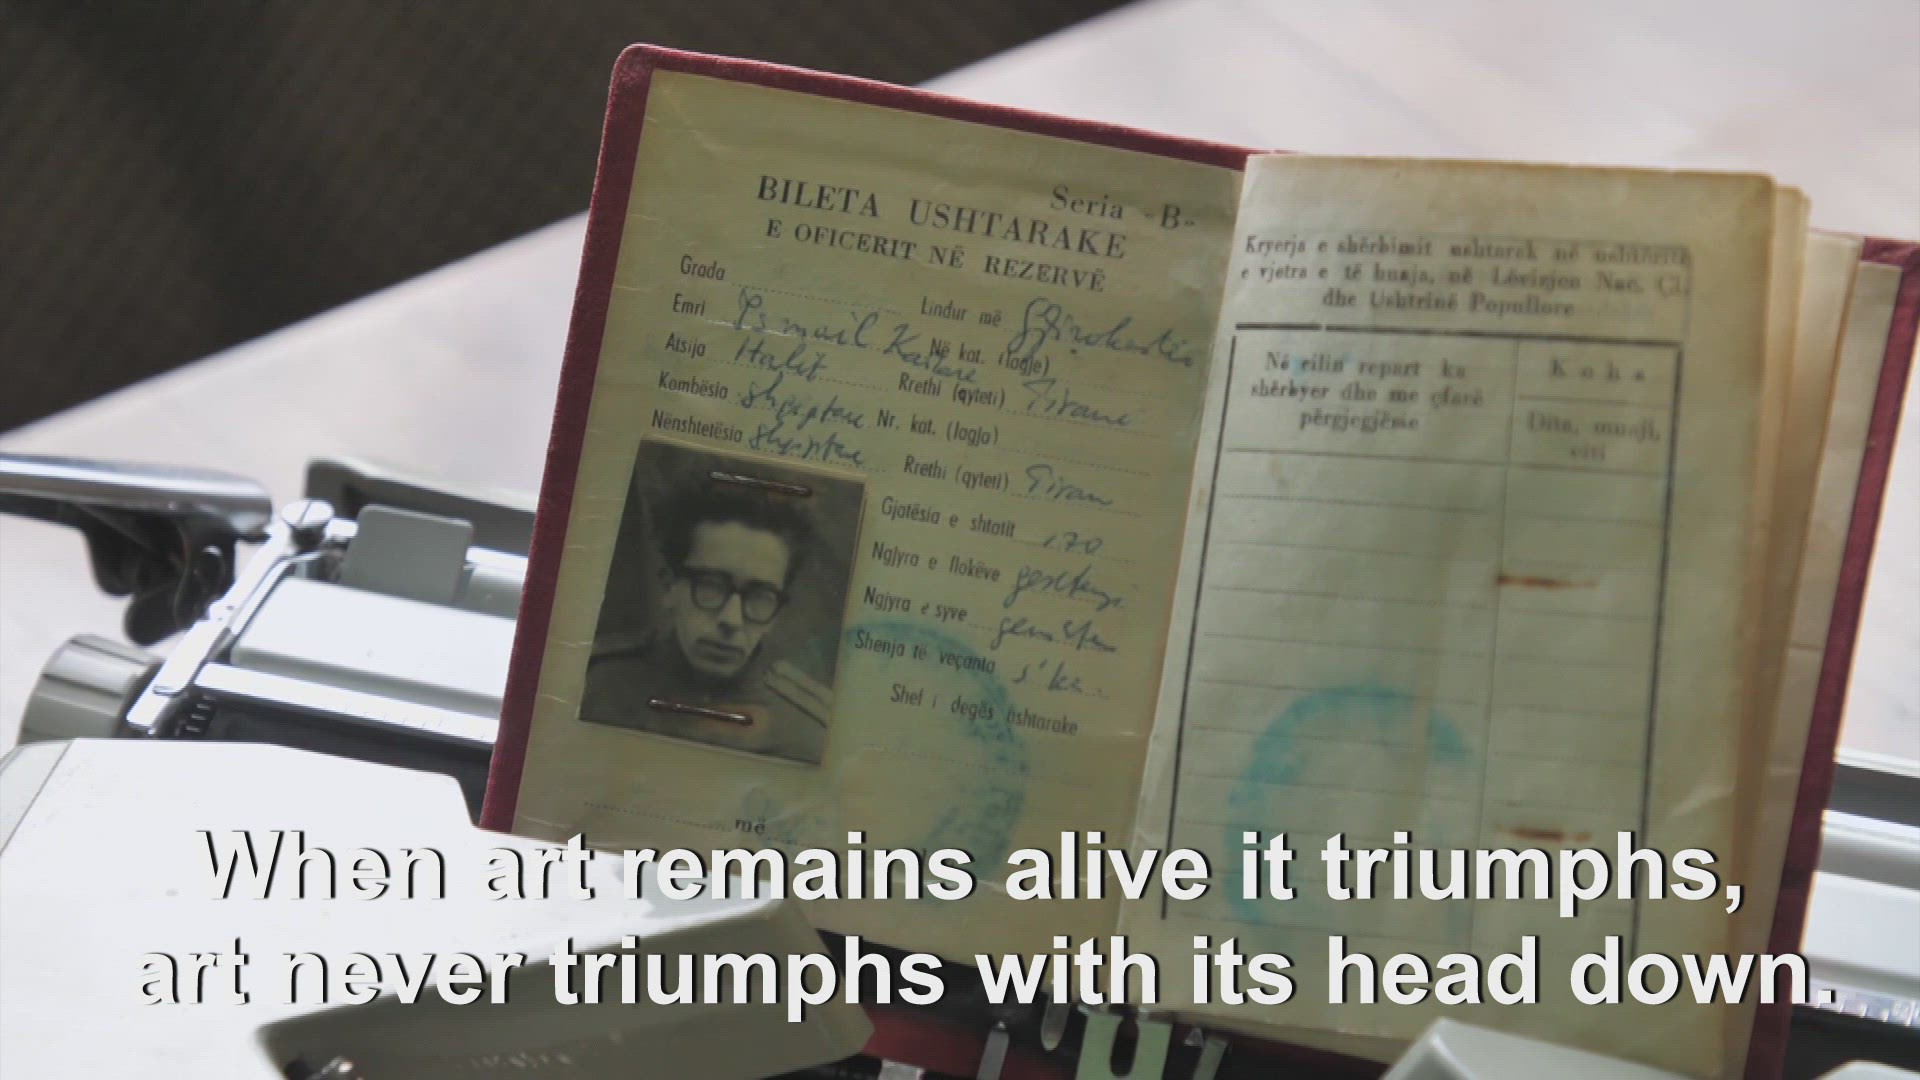 Seria «B»
BILETA USHTARAKE
E OFICERIT NË REZERVË
Grada
Emri Ismail Kadare
Atsija Halit
Kombësia shqiptare
Nënshtetësia shqiptare
Lindur më Gjirokastër
Në kat. (lagje)
Rrethi (qyteti) Tiranë
Nr. kat. (lagja)
Rrethi (qyteti) Tiran
Gjatësia e shtatit 170
Ngjyra e flokëve
Ngjyra e syve
Shenja të veçanta s'ka
Shef i degës ushtarake
më
Kryerja e shërbimit ushtarak në ushtëritë
e vjetra e të huaja, në Lëvizjen Nac. Çl.
dhe Ushtrinë Popullore
Në cilin repart ka
shërbyer dhe me çfarë
përgjegjësie
Koha
Dita, muaji,
viti
When art remains alive it triumphs,
art never triumphs with its head down.